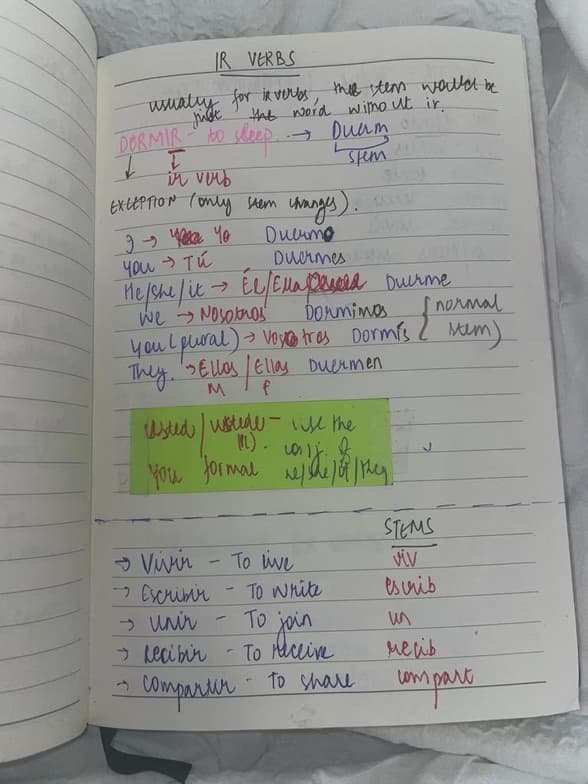 IR VERBS
usually for ir verbs, the stem would be
just the word without ir.
DORMIR - to sleep → Duerm
stem
ir verb
EXCEPTION (only stem changes).
I → Yo Duermo
You → TÚ Duermes
He/she/it → Él/Ella Duerme
We → Nosotros Dormimos { normal
You (plural) → Vosotros Dormís stem )
They. → Ellos / Ellas Duermen
M F
usted / ustede - use the
(Pl). conj. of
You formal he/she/it/they
STEMS
→ Vivir - To live viv
→ Escribir - To write escrib
→ unir - To join un
→ Recibir - To receive recib
→ compartir - To share compart